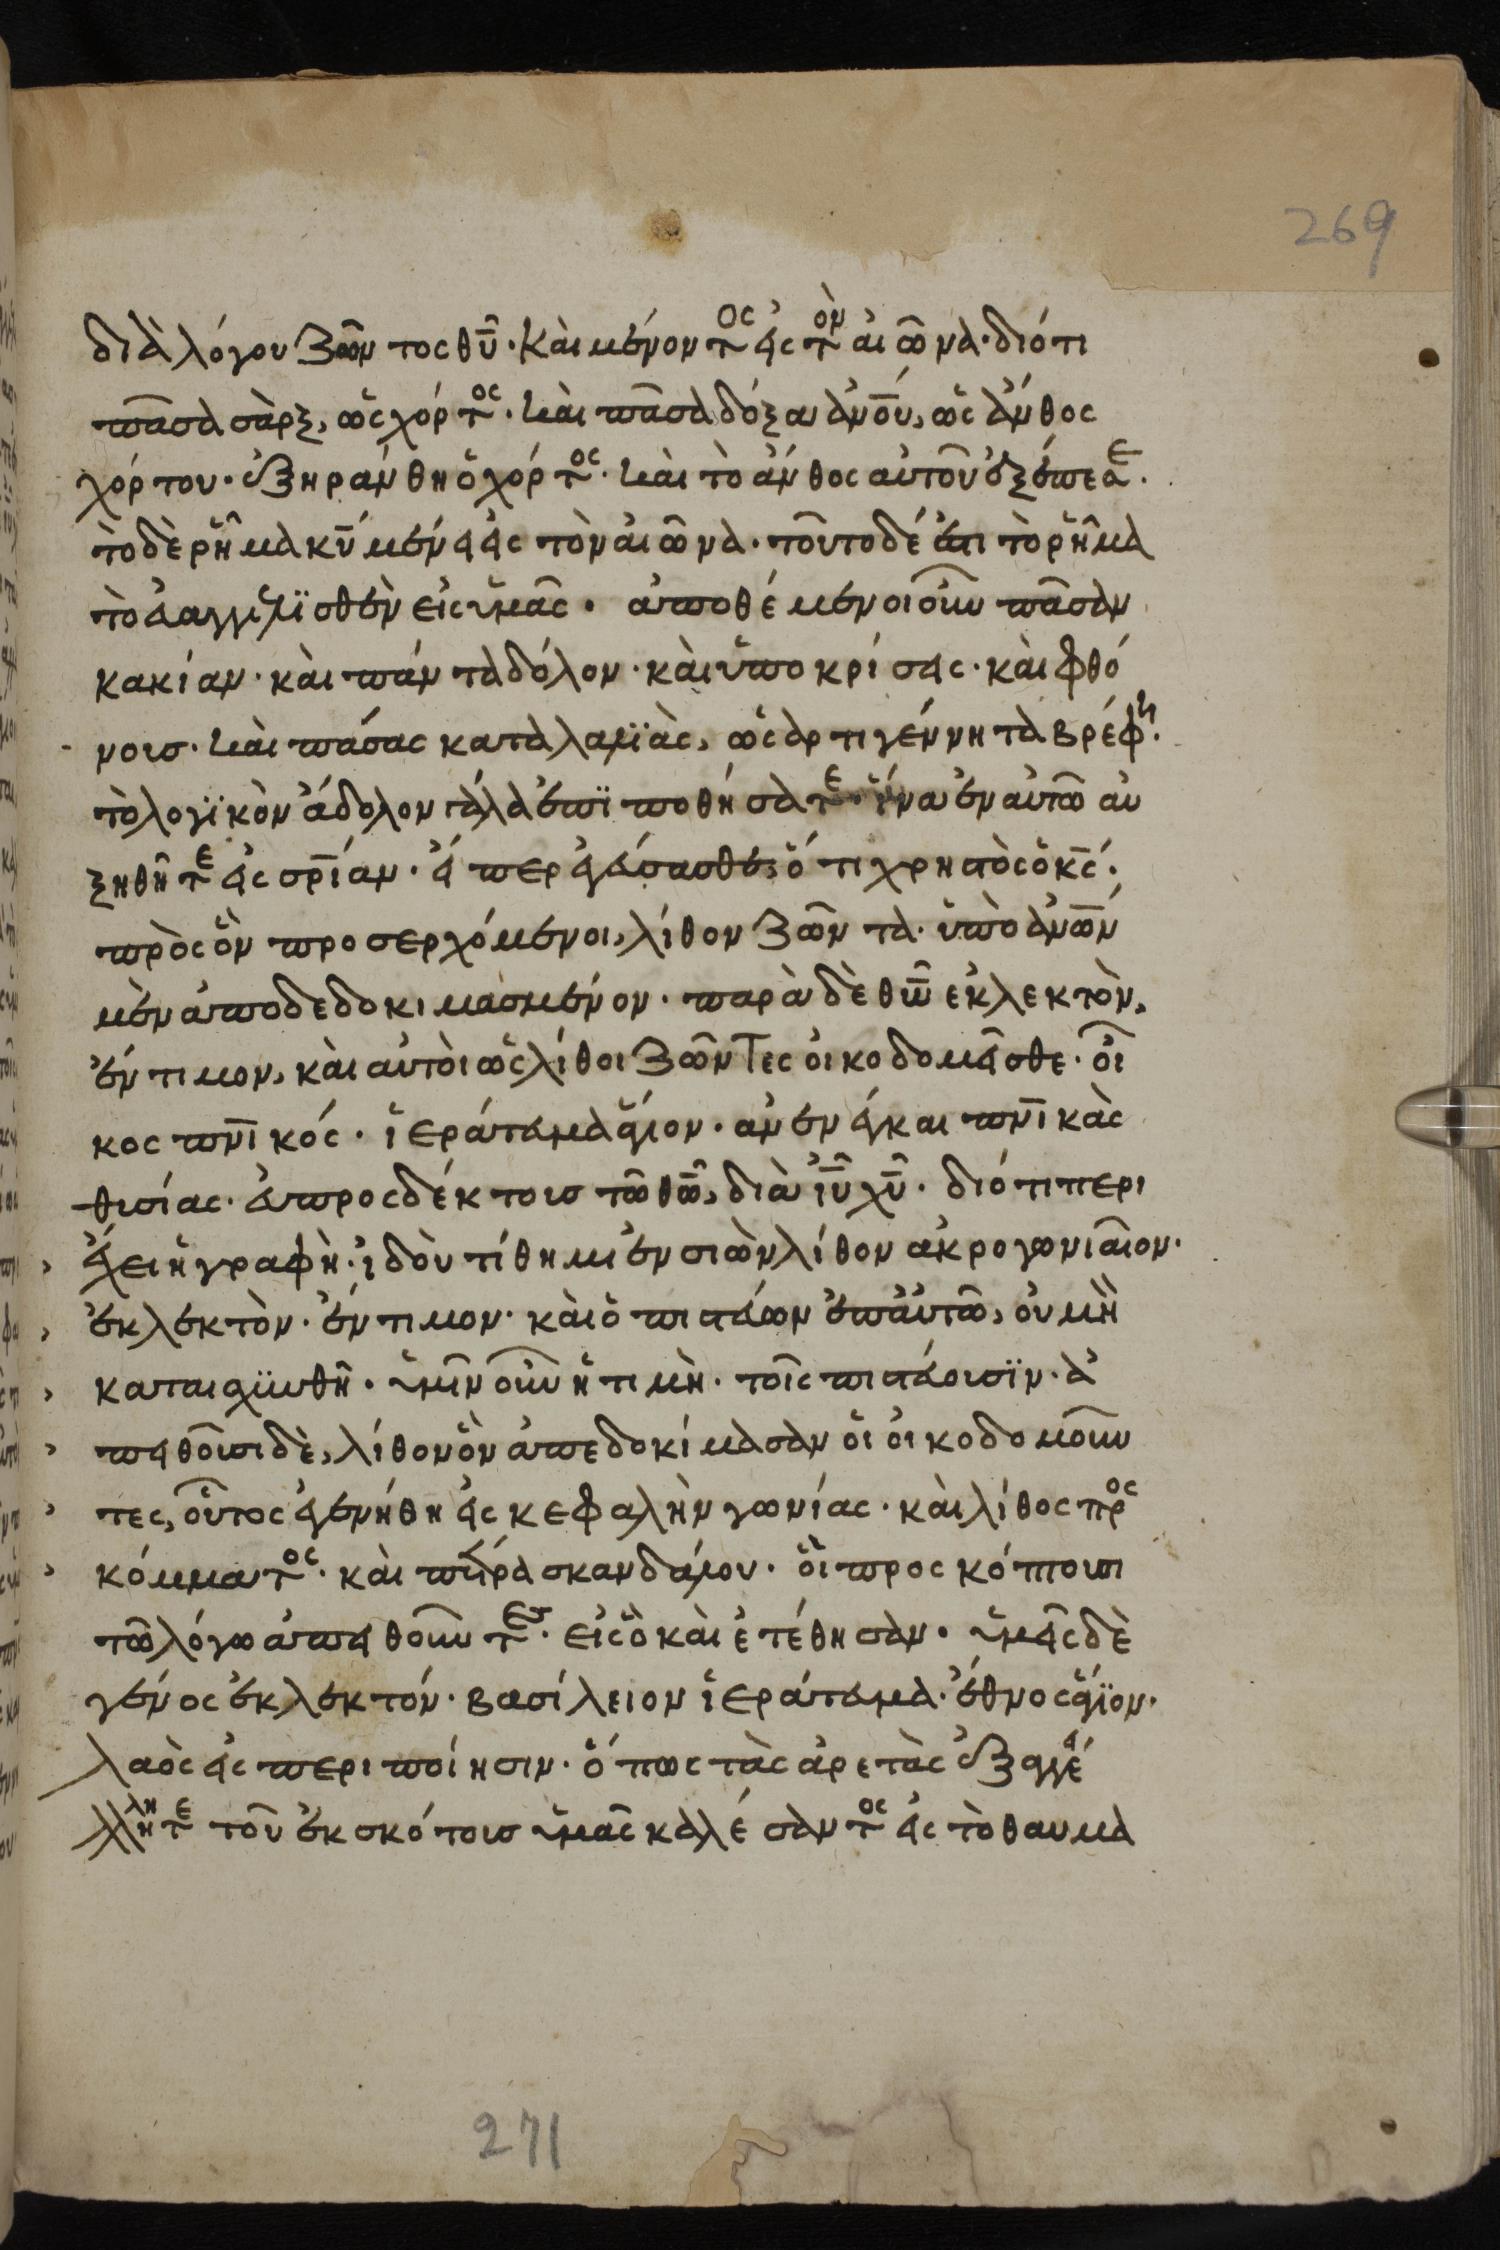 269
διὰ λόγου ζῶντος θῦ· Καὶ μένοντος εἰς τὸν αἰῶνα· διότι
πᾶσα σὰρξ, ὡς χόρτος· καὶ πᾶσα δόξα ἀνοῦ, ὡς ἄνθος
χόρτου· ἐξηράνθη ὁ χόρτος· καὶ τὸ ἄνθος αὐτοῦ ἐξέπεσε·
τὸ δὲ ρῆμα κῡ μένει εἰς τὸν αἰῶνα· τοῦτο δέ ἐστι τὸ ρῆμα
τὸ εὐαγγελϊσθὲν εἰς ὑμᾶς· ἀποθέμενοι οὖν πᾶσαν
κακίαν· καὶ πάντα δόλον· καὶ ὑποκρίσεις· καὶ φθό
νους· καὶ πάσας καταλαλϊὰς, ὡς ἀρτιγέννητα βρέφη·
τὸ λογϊκὸν ἄδολον γάλα ἐπϊποθήσατε· ἵνα ἐν αὐτῶ αὐ
ξηθῆτε εἰς σρίαν· εἴπερ ἐγεύσασθε, ὅτι χρηστὸς ὁ κς·
πρὸς ὃν προσερχόμενοι, λίθον ζῶντα· ὑπὸ ἀνων
μὲν ἀποδεδοκιμασμένον· παρὰ δὲ θω ἐκλεκτὸν,
ἔντιμον, καὶ αὐτοὶ ὡς λίθοι ζῶντες οἰκοδομεῖσθε· οἶ
κος πνικός· ἱεράτευμα ἅγιον· ἀνενέγκαι πνικὰς
θυσίας· εὐπροσδέκτους τῶ θω, διὰ ιυ χυ· διότι περι
έχει ἡ γραφὴ· ἰδοὺ τίθημι ἐν σιὼν λίθον ἀκρογωνιαῖον·
ἐκλεκτὸν· ἔντιμον· καὶ ὁ πιστεύων ἐπ' αὐτῶ, οὐ μὴ
καταισχϋνθῆ· ὑμῖν οὖν ἡ τιμὴ· τοῖς πιστεύουσϊν· ἀ
πειθοῦσι δὲ, λίθον ὃν ἀπεδοκίμασαν οἱ οἰκοδομοῦν
τες, οὗτος ἐγενήθη εἰς κεφαλὴν γωνίας· καὶ λίθος προς
κόμματος· καὶ πέτρα σκανδάλου· οἳ προσκόπτουσι
τῶ λόγω ἀπειθοῦντες· εἰς ὃ καὶ ἐτέθησαν· ὑμεῖς δὲ
γένος ἐκλεκτόν· βασίλειον ἱεράτευμα· ἔθνος ἅγϊον·
λαὸς εἰς περιποίησιν· ὅπως τὰς ἀρετὰς ἐξαγγεί
λητε τοῦ ἐκ σκότους ὑμᾶς καλέσαντος εἰς τὸ θαυμα
271